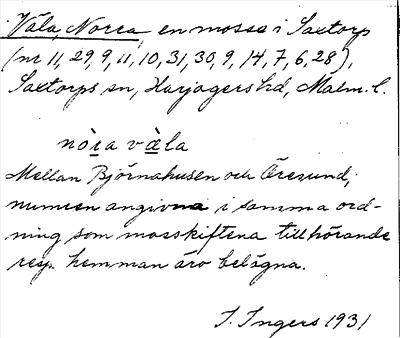 Våla, Norra, en mosse i Saxtorp
(nr 11, 29, 9, 11, 10, 31, 30, 9, 14, 7, 6, 28),
Saxtorps sn, Harjagers hd, Malm. l.
nòra væ̀la
Mellan Björnahusen och Öresund;
numren angivna i samma ord-
ning som mosskiftena tillhörande
resp. hemman äro belägna.
I. Ingers 1931